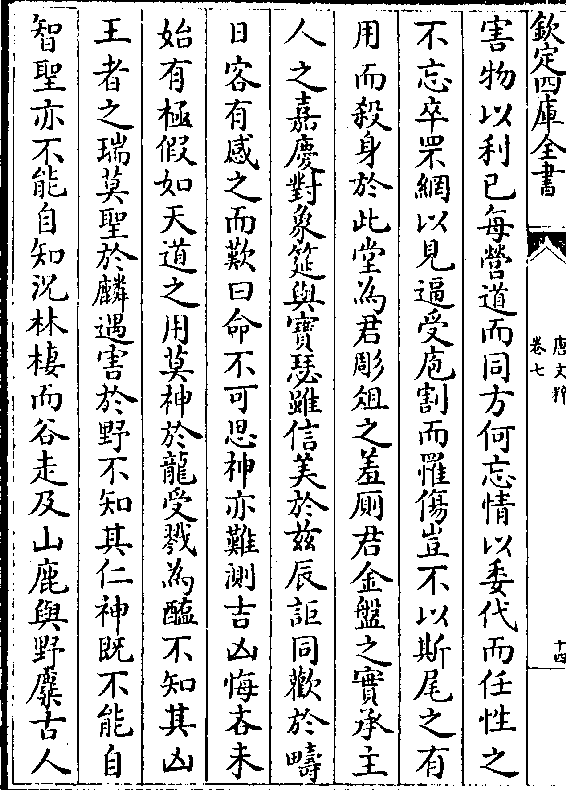 欽定四庫全書
唐文粹
卷七
十四
害物以利己每營道而同方何忘情以委代而任性之
不忘卒罘網以見逼受庖割而罹傷豈不以斯尾之有
用而殺身於此堂為君彫俎之羞厠君金盤之實承主
人之嘉慶對象筵與寶瑟雖信美於兹辰詎同歡於疇
日客有感之而歎曰命不可思神亦難測吉凶悔吝未
始有極假如天道之用莫神於龍受戮為醢不知其凶
王者之瑞莫聖於麟遇害於野不知其仁神既不能自
智聖亦不能自知況林棲而谷走及山鹿與野麋古人